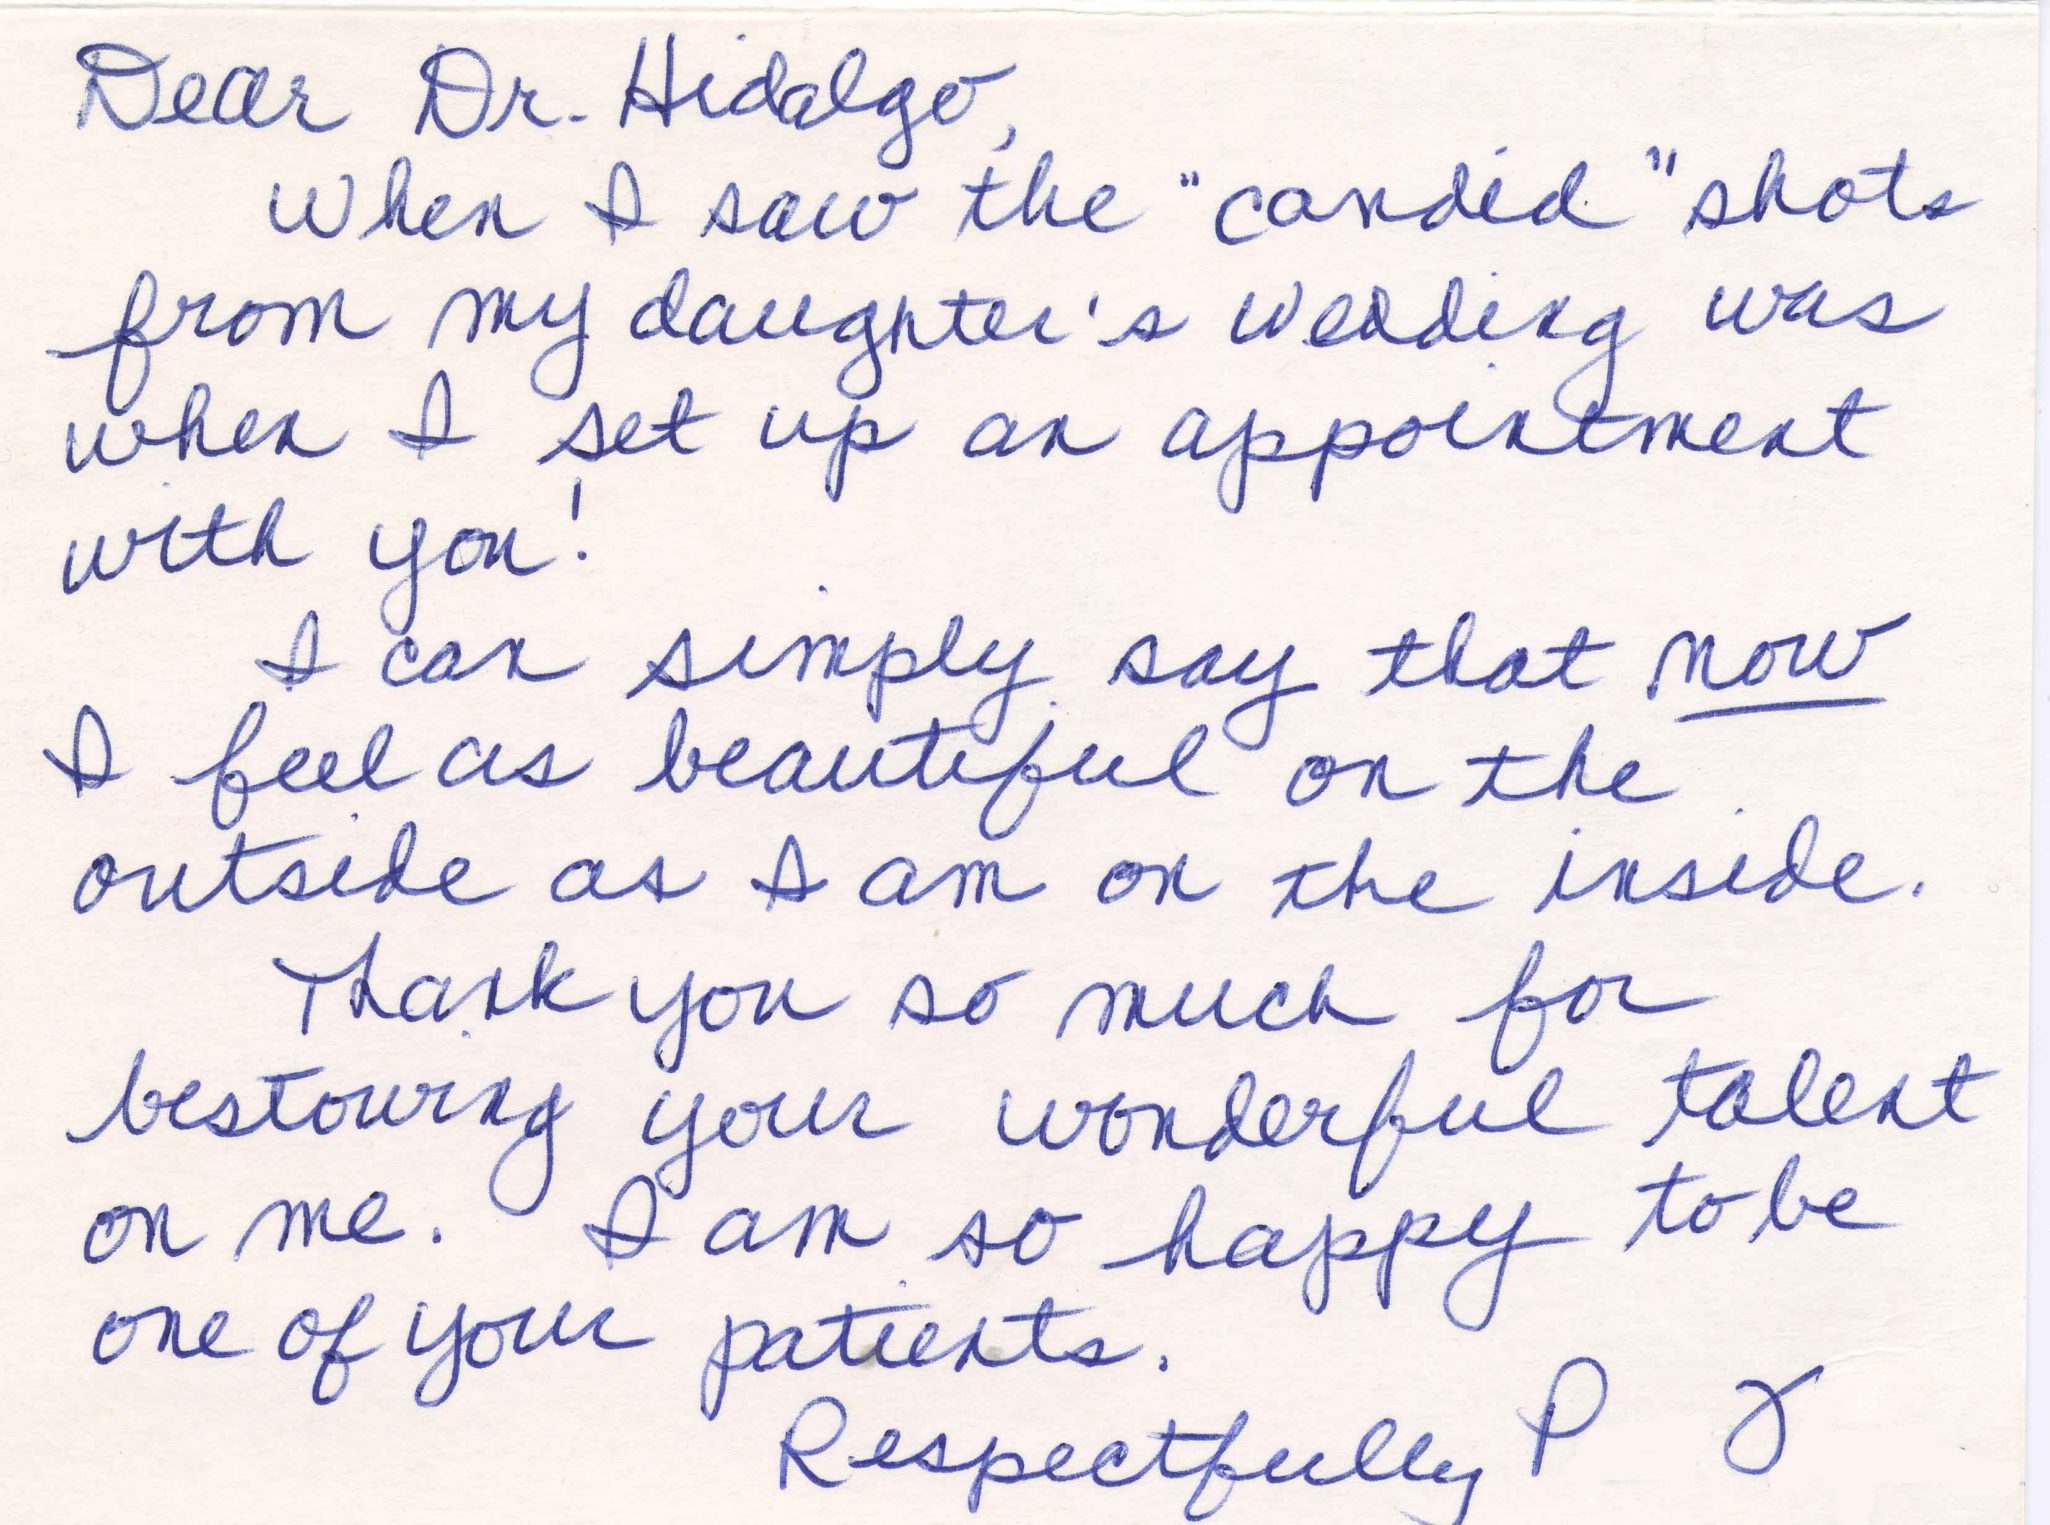 Dear Dr. Hidalgo,
When I saw the "candid" shots
from my daughter's wedding was
when I set up an appointment
with you!
I can simply say that now
I feel as beautiful on the
outside as I am on the inside.
Thank you so much for
bestowing your wonderful talent
on me. I am so happy to be
one of your patients.
Respectfully P